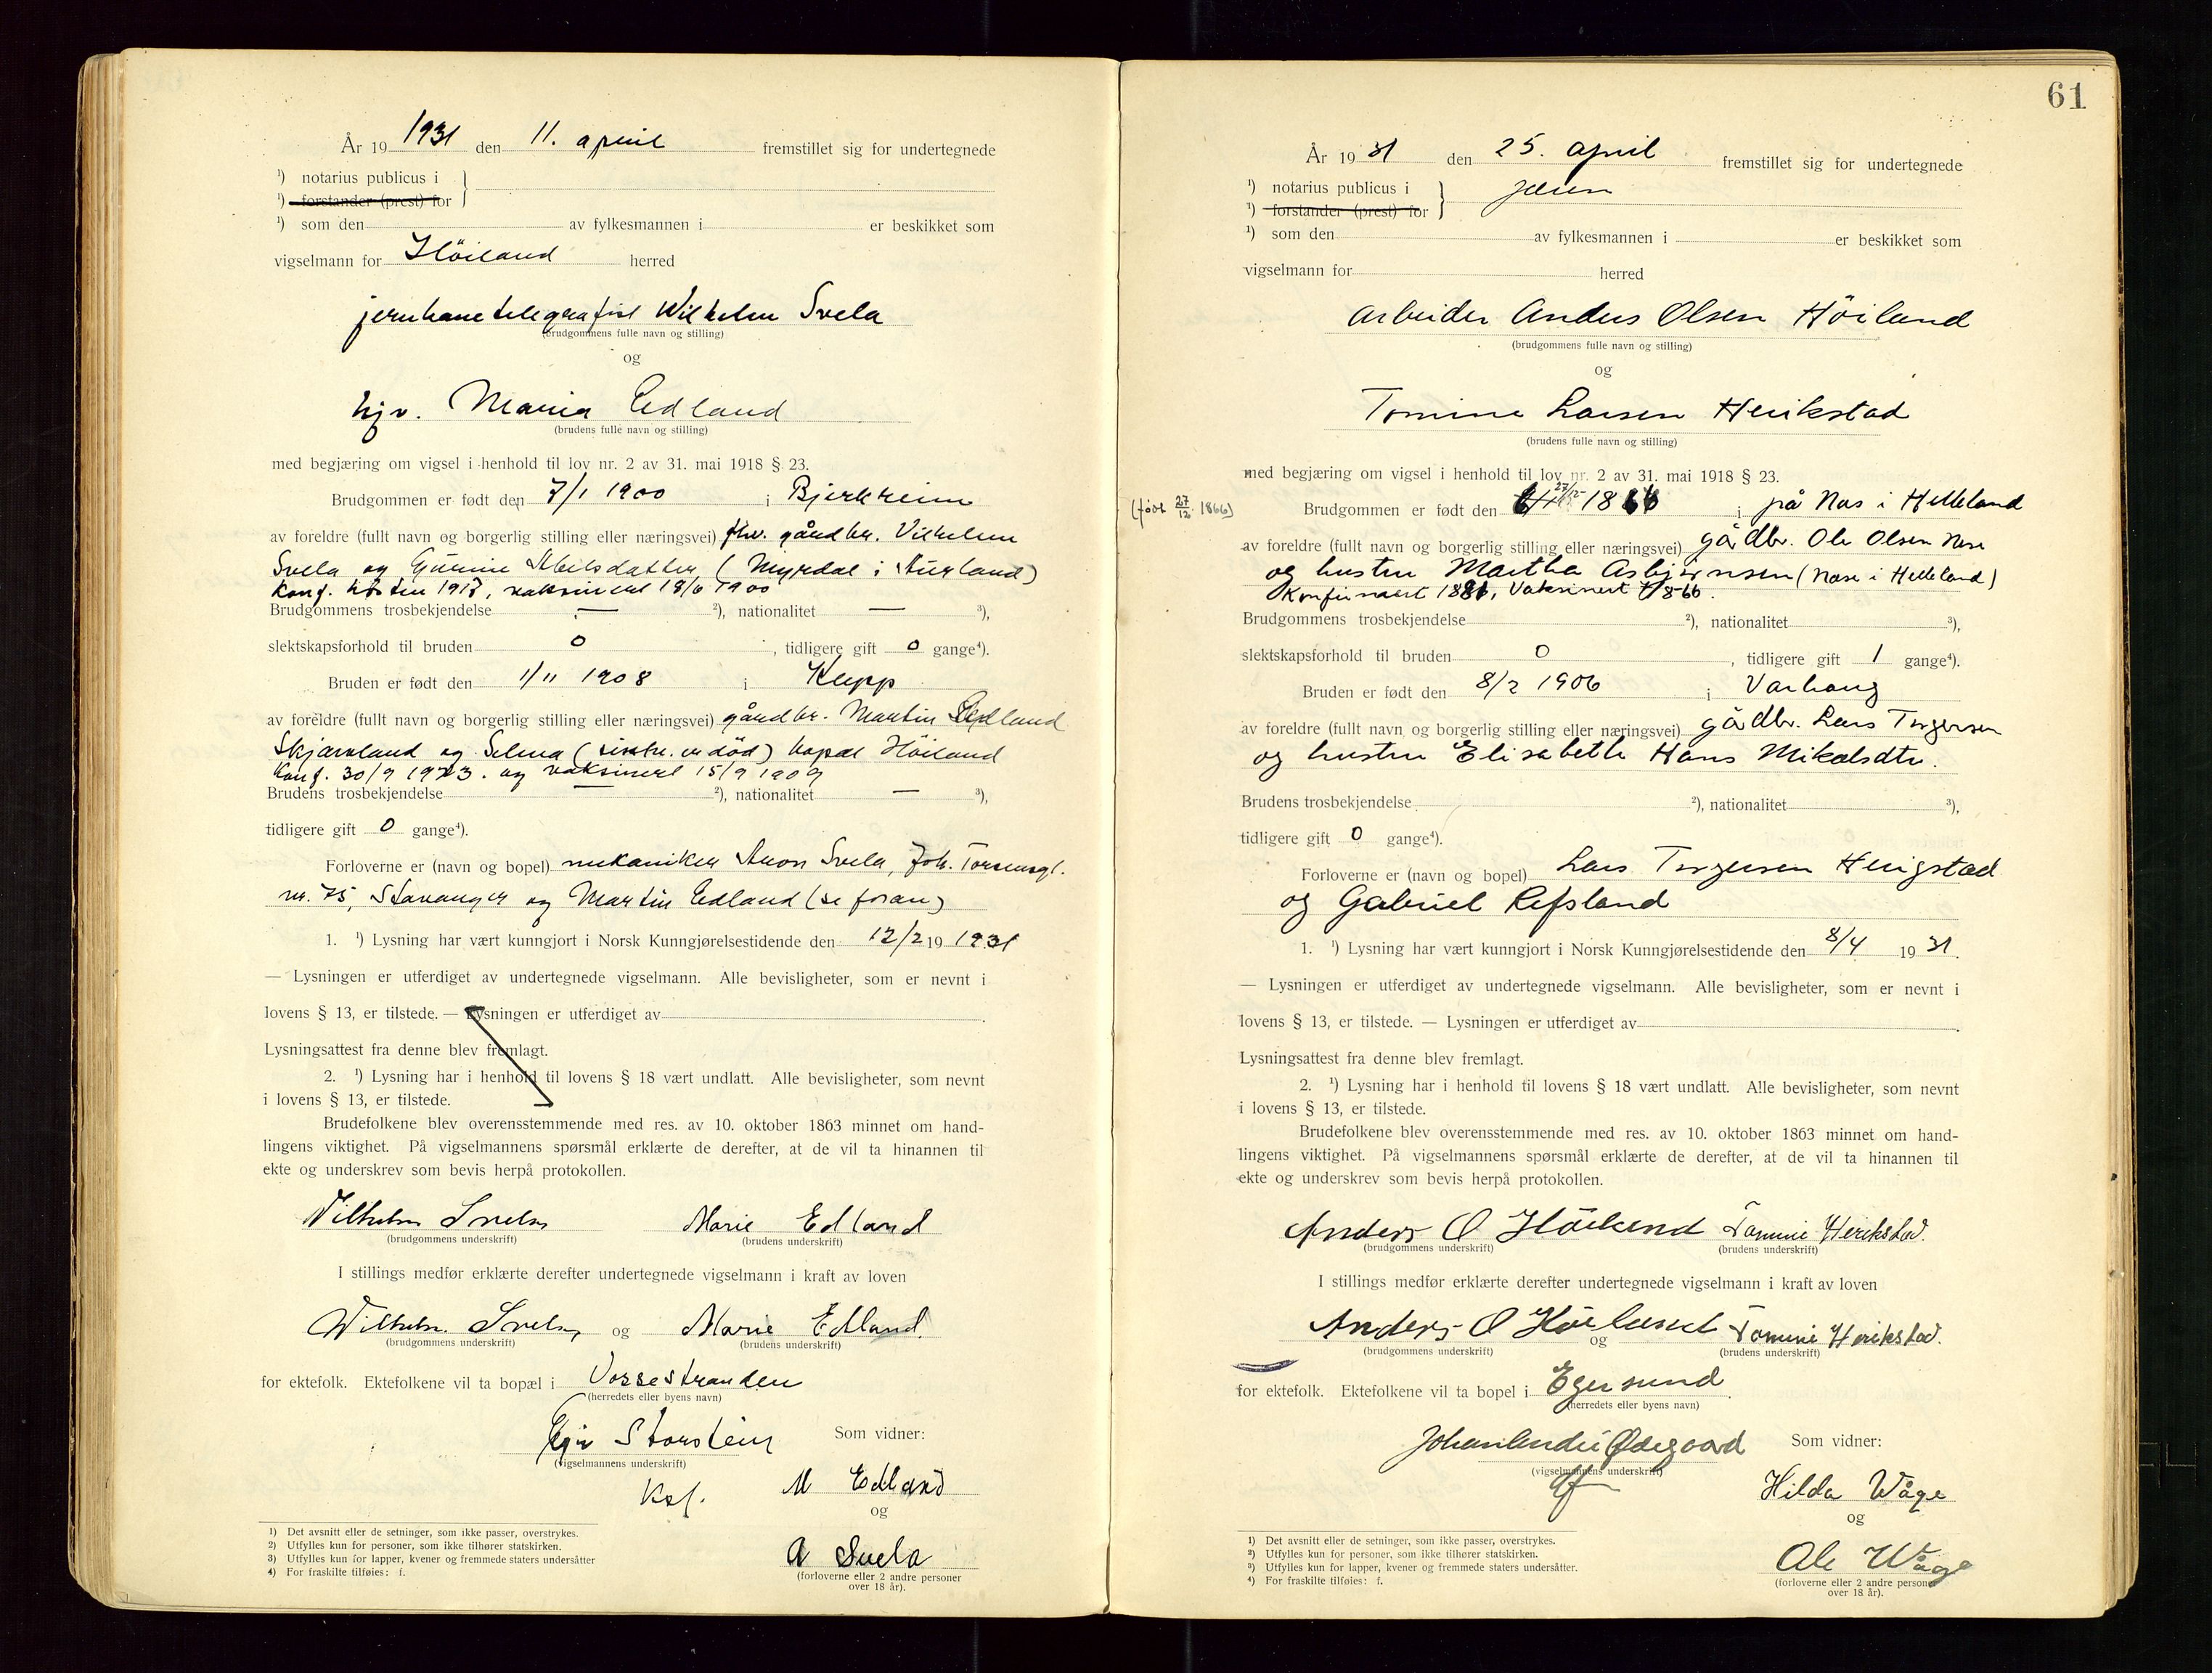 År 19 1931 den 11. april fremstillet sig for undertegnede
¹) notarius publicus i
¹) forstander (prest) for
¹) som den av fylkesmannen i er beskikket som
vigselmann for Höiland herred
jernbanetelegrafist Wilhelm Svela
(brudgommens fulle navn og stilling)
og
hjv. Maria Edland
(brudens fulle navn og stilling)
med begjæring om vigsel i henhold til lov nr. 2 av 31. mai 1918 § 23.
Brudgommen er født den 7/1 1900 i Bjerkreim
av foreldre (fullt navn og borgerlig stilling eller næringsvei) fhv. gårdbr. Vilhelm
Svela og Gurine Abelsdatter (Myrdal i Aurland)
Konf. høsten 1917, vaksinert 18/6 1900
Brudgommens trosbekjendelse — ²), nationalitet — ³),
slektskapsforhold til bruden 0, tidligere gift 0 gange⁴).
Bruden er født den 1/11 1908 i Klepp
av foreldre (fullt navn og borgerlig stilling eller næringsvei) gårdbr. Martin Edland
Skjæveland og Selma (sistn. er död) bopæl Höiland
Konf. 30/9 1923. og vaksinert 15/9 1909
Brudens trosbekjendelse — ²), nationalitet — ³),
tidligere gift 0 gange⁴).
Forloverne er (navn og bopel) mekaniker Aron Svela, Joh. Torsensgt.
nr. 75, Stavanger og Martin Edland (se foran)
1. ¹) Lysning har vært kunngjort i Norsk Kunngjørelsestidende den 12/2 19 1931
— Lysningen er utferdiget av undertegnede vigselmann. Alle bevisligheter, som er nevnt i
lovens § 13, er tilstede. — Lysningen er utferdiget av
Lysningsattest fra denne blev fremlagt.
2. ¹) Lysning har i henhold til lovens § 18 vært undlatt. Alle bevisligheter, som nevnt
i lovens § 13, er tilstede.
Brudefolkene blev overensstemmende med res. av 10. oktober 1863 minnet om hand-
lingens viktighet. På vigselmannens spørsmål erklærte de derefter, at de vil ta hinannen til
ekte og underskrev som bevis herpå protokollen.
Vilhelm Svela Marie Edland
(brudgommens underskrift) (brudens underskrift)
I stillings medfør erklærte derefter undertegnede vigselmann i kraft av loven
Wilhelm Svela og Marie Edland.
(brudgommens underskrift) (brudens underskrift)
for ektefolk. Ektefolkene vil ta bopæl i Vossestranden
(herredets eller byens navn)
Storstein Som vidner:
(vigselmannens underskrift)
Kst. M Edland
og
A Svela
(forloverne eller 2 andre personer
over 18 år).
1) Det avsnitt eller de setninger, som ikke passer, overstrykes.
2) Utfylles kun for personer, som ikke tilhører statskirken.
3) Utfylles kun for lapper, kvener og fremmede staters undersåtter
4) For fraskilte tilføies: f.
61
År 19 31 den 25. april fremstillet sig for undertegnede
¹) notarius publicus i Jæren
¹) forstander (prest) for
¹) som den av fylkesmannen i er beskikket som
vigselmann for herred
arbeider Anders Olsen Höiland
(brudgommens fulle navn og stilling)
og
Tomine Larsen Herikstad
(brudens fulle navn og stilling)
med begjæring om vigsel i henhold til lov nr. 2 av 31. mai 1918 § 23.
(født 27/12 1866) Brudgommen er født den 27/12 1866 i på Nas i Helleland
av foreldre (fullt navn og borgerlig stilling eller næringsvei) gårdbr. Ole Olsen Nase
og hustru Martha Asbjørnsen (Nase i Helleland)
Konfirmert 1881, Vaksinert 7/8-66.
Brudgommens trosbekjendelse ²), nationalitet ³),
slektskapsforhold til bruden 0, tidligere gift 1 gange⁴).
Bruden er født den 8/2 1906 i Varhaug
av foreldre (fullt navn og borgerlig stilling eller næringsvei) gårdbr. Lars Torgersen
og hustru Elisabeth Hans Mikalsdtr.
Brudens trosbekjendelse ²), nationalitet ³),
tidligere gift 0 gange⁴).
Forloverne er (navn og bopel) Lars Torgersen Herigstad
og Gabriel Refsland
1. ¹) Lysning har vært kunngjort i Norsk Kunngjørelsestidende den 8/4 19 31.
— Lysningen er utferdiget av undertegnede vigselmann. Alle bevisligheter, som er nevnt i
lovens § 13, er tilstede. — Lysningen er utferdiget av
Lysningsattest fra denne blev fremlagt.
2. ¹) Lysning har i henhold til lovens § 18 vært undlatt. Alle bevisligheter, som nevnt
i lovens § 13, er tilstede.
Brudefolkene blev overensstemmende med res. av 10. oktober 1863 minnet om hand-
lingens viktighet. På vigselmannens spørsmål erklærte de derefter, at de vil ta hinannen til
ekte og underskrev som bevis herpå protokollen.
Anders O Höiland Tomine Herikstad.
(brudgommens underskrift) (brudens underskrift)
I stillings medfør erklærte derefter undertegnede vigselmann i kraft av loven
Anders O Höiland og Tomine Herikstad.
(brudgommens underskrift) (brudens underskrift)
for ektefolk. Ektefolkene vil ta bopel i Egersund.
(herredets eller byens navn)
Johan Andr. Ødegaard Som vidner:
(vigselmannens underskrift)
Hilda Wåge
og
Ole Wåge
(forloverne eller 2 andre personer
over 18 år).
1) Det avsnitt eller de setninger, som ikke passer, overstrykes.
2) Utfylles kun for personer, som ikke tilhører statskirken.
3) Utfylles kun for lapper, kvener og fremmede staters undersåtter.
4) For fraskilte tilføies: f.